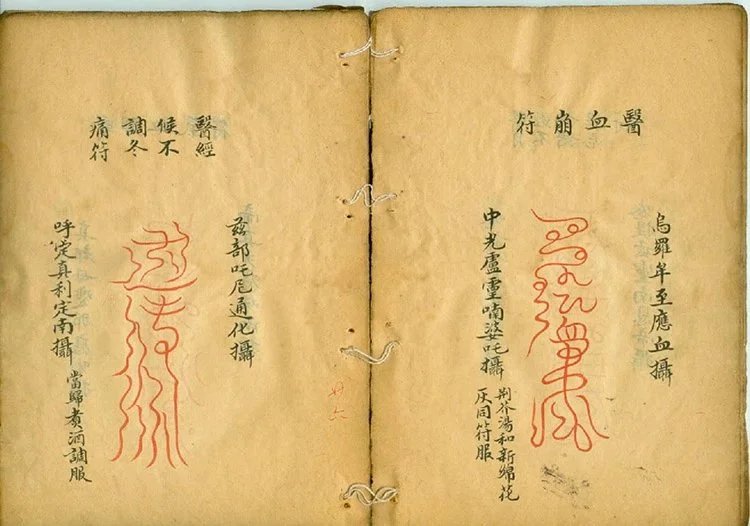 醫血崩符
烏羅牟至應血攝
中光盧靈喃婆吒攝
荊芥湯和新綿花
灰同符服
廿六
醫經
候不
調冬
痛符
茲部吒尼通化攝
呼定真利定南攝
當歸煮酒調服